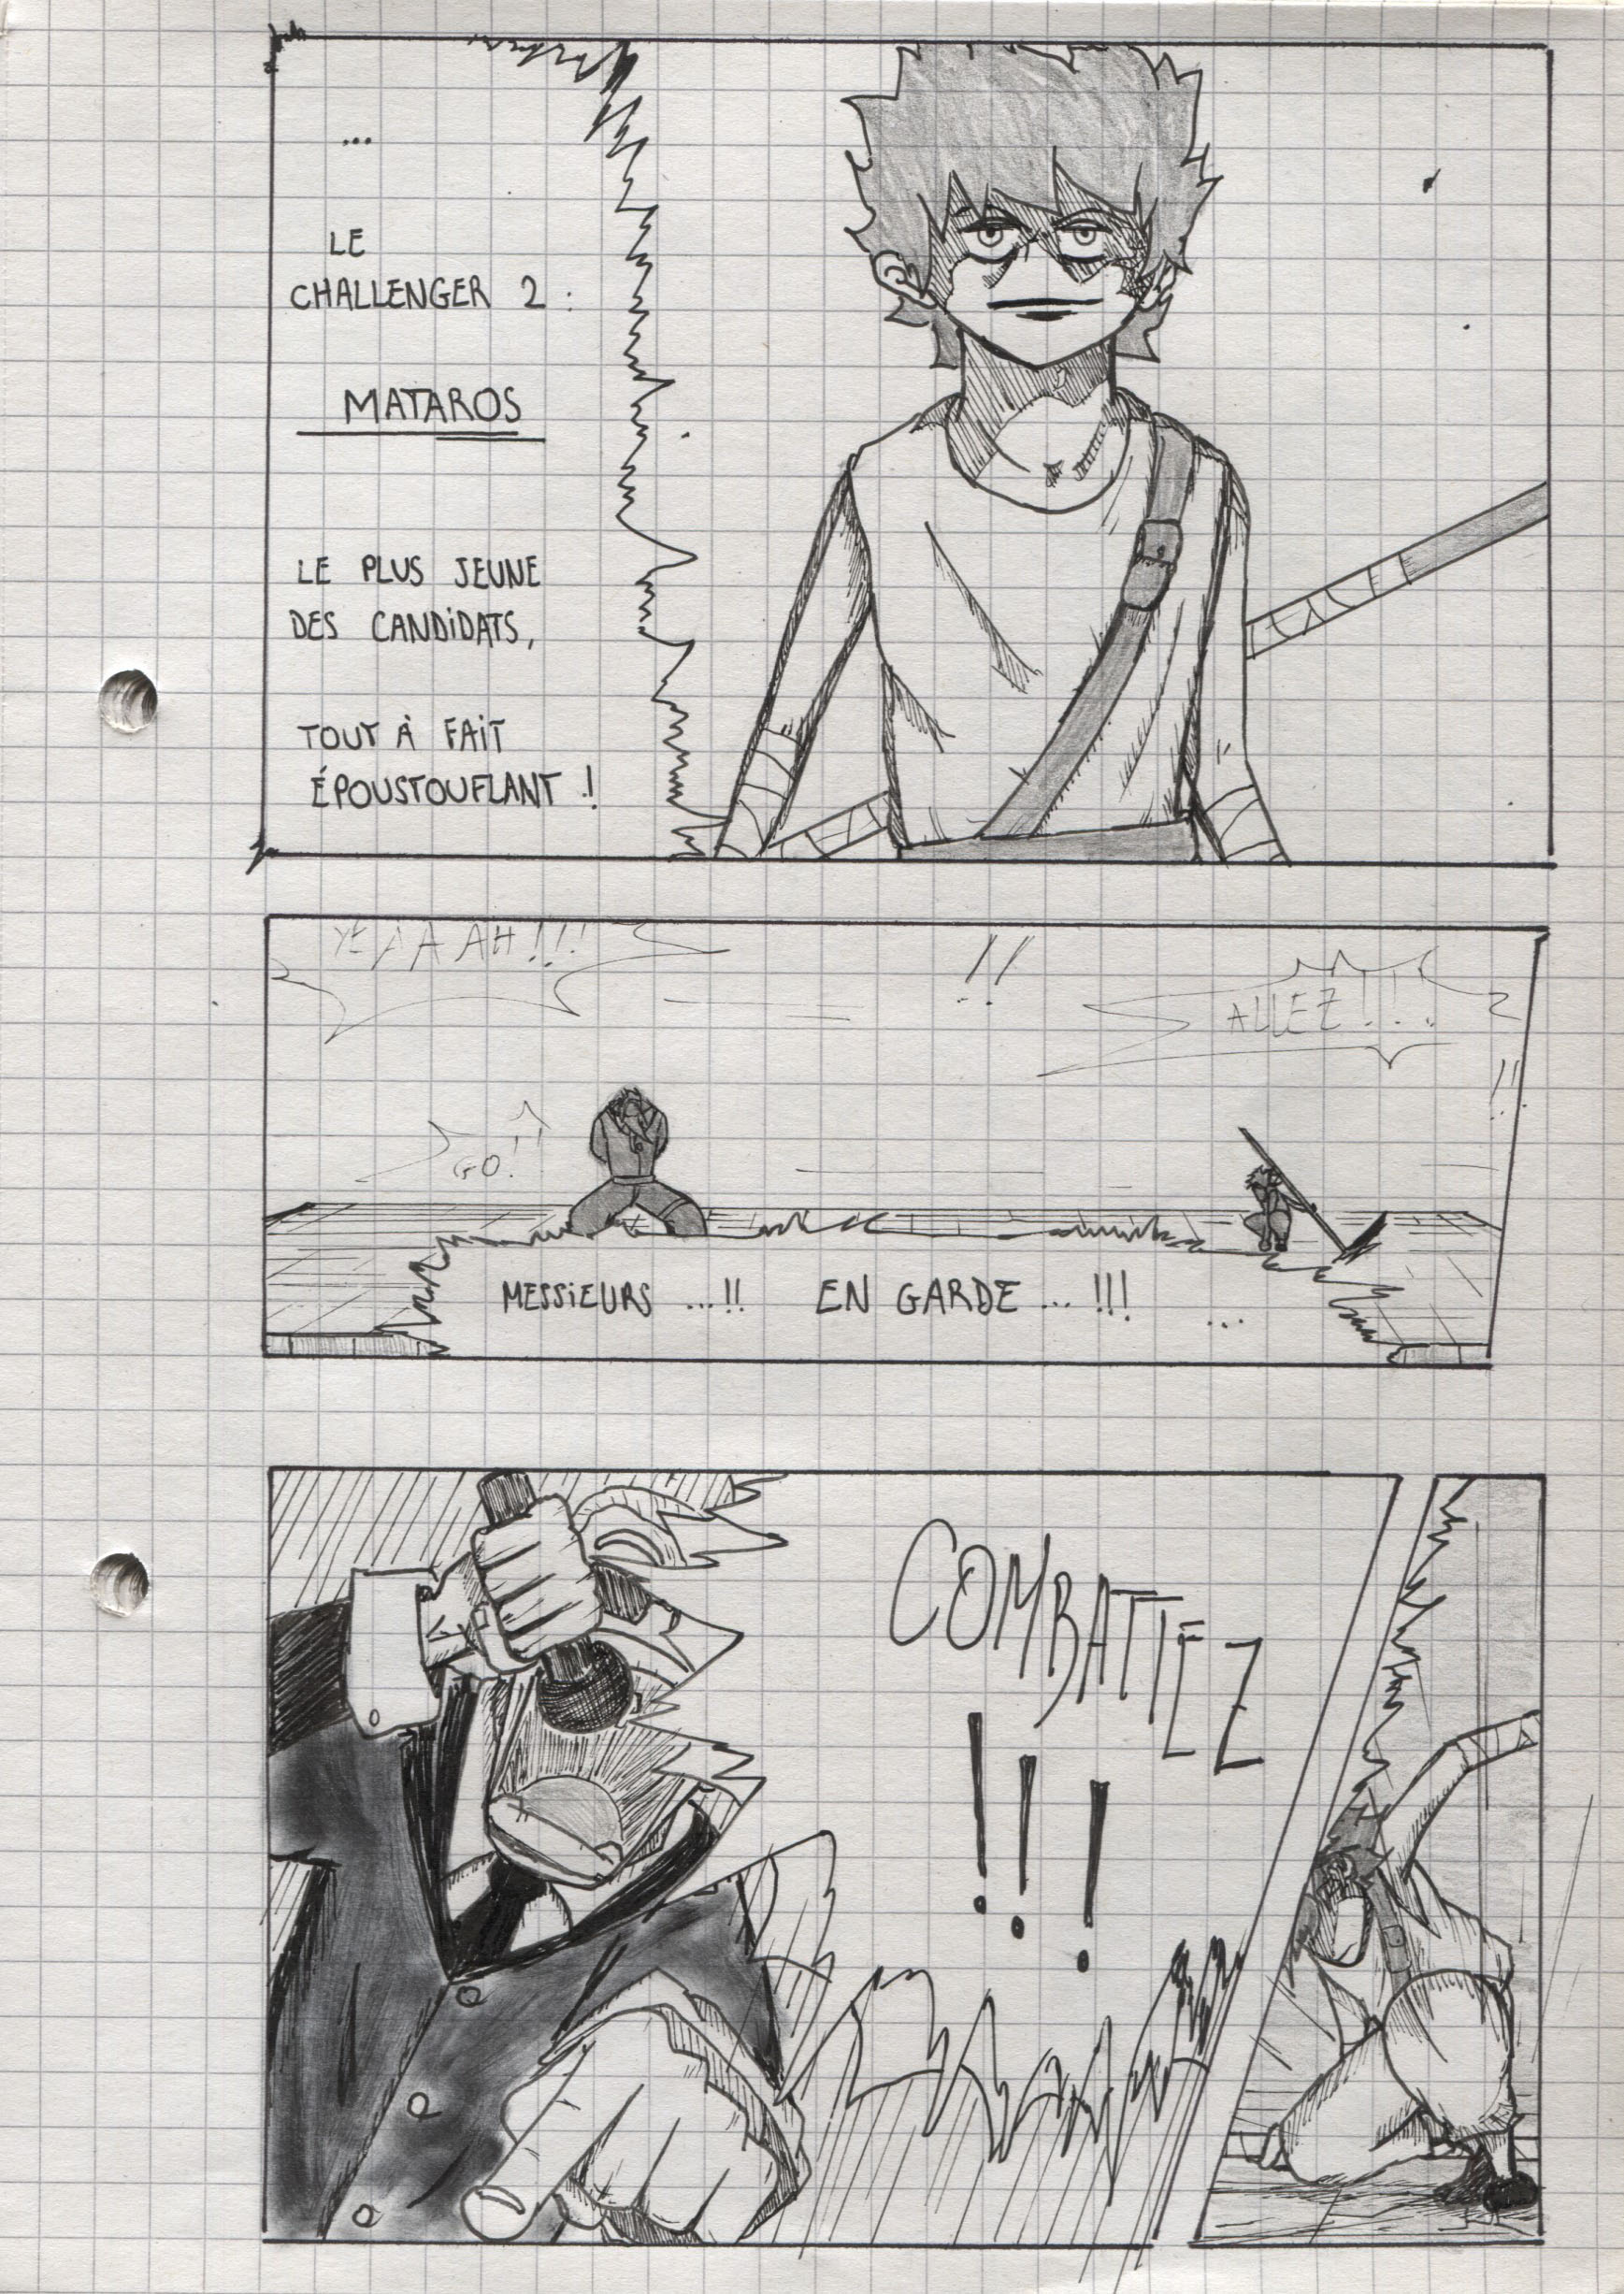 ...
LE
CHALLENGER 2 :
MATAROS
LE PLUS JEUNE
DES CANDIDATS,
TOUT À FAIT
ÉPOUSTOUFLANT !
YEAAAAH!!!
!!
ALLEZ!!!
!!
GO!
MESSIEURS ...!! EN GARDE ... !!!
...
COMBATTEZ
!!!